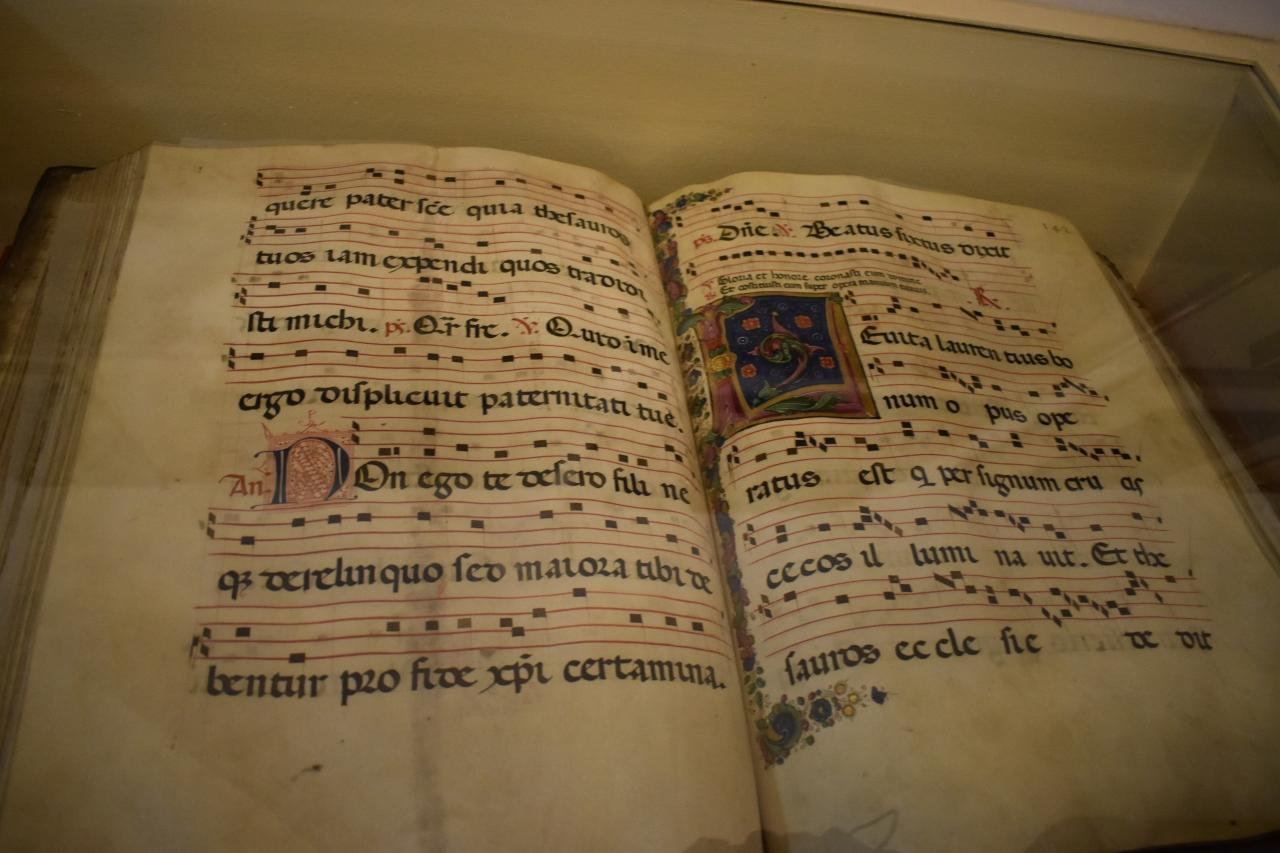 quere pater sc̄e quia thesauros
tuos iam expendi quos tradidi
sti michi. ps. Or̄ fir̄e. V. Quid i me
ergo displicuit paternitati tue.
An. Non ego te desero fili ne
qz derelinquo sed maiora tibi de
bentur pro fide xp̄i certamina.
142
ps. Dn̄e. V. Beatus sixtus dixit
Gloria et honore coronasti eum domine.
Et cōstituisti eum super opera manuum tuarum.
R.
Leuita laurentius bo
num o pus ope
ratus est q per signum cru cis
ce cos il lumi na uit. Et the
sauros ec cle sie de dit